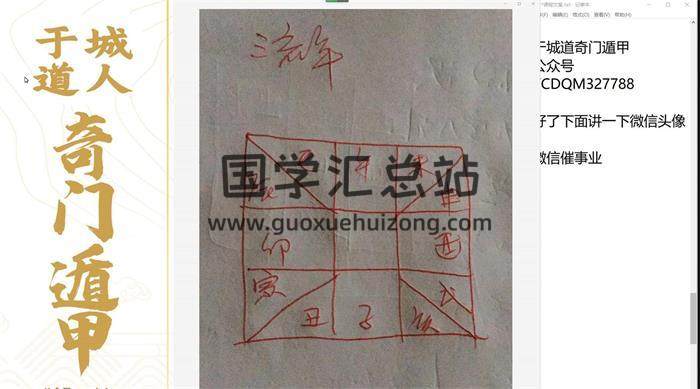 于城
道人
奇门遁甲
三流年
午
申
卯
酉
寅
丑
子
亥
戌
国学汇总站
www.guoxuehuizong.com
格式(O) 查看(V) 帮助(H)
于城道奇门遁甲
公众号
CDQM327788
好了下面讲一下微信头像
微信催事业